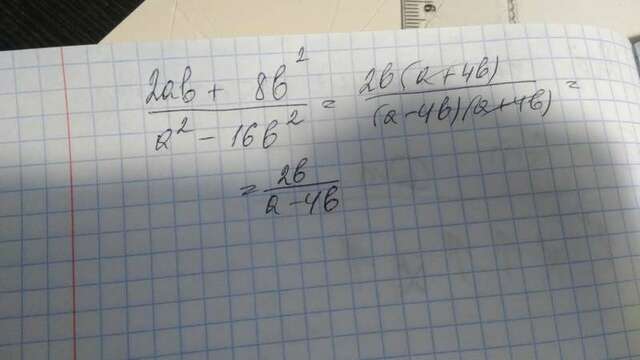 (2ab + 8b²)/(a² - 16b²) = (2b(a+4b))/((a-4b)(a+4b)) =
= 2b/(a-4b)